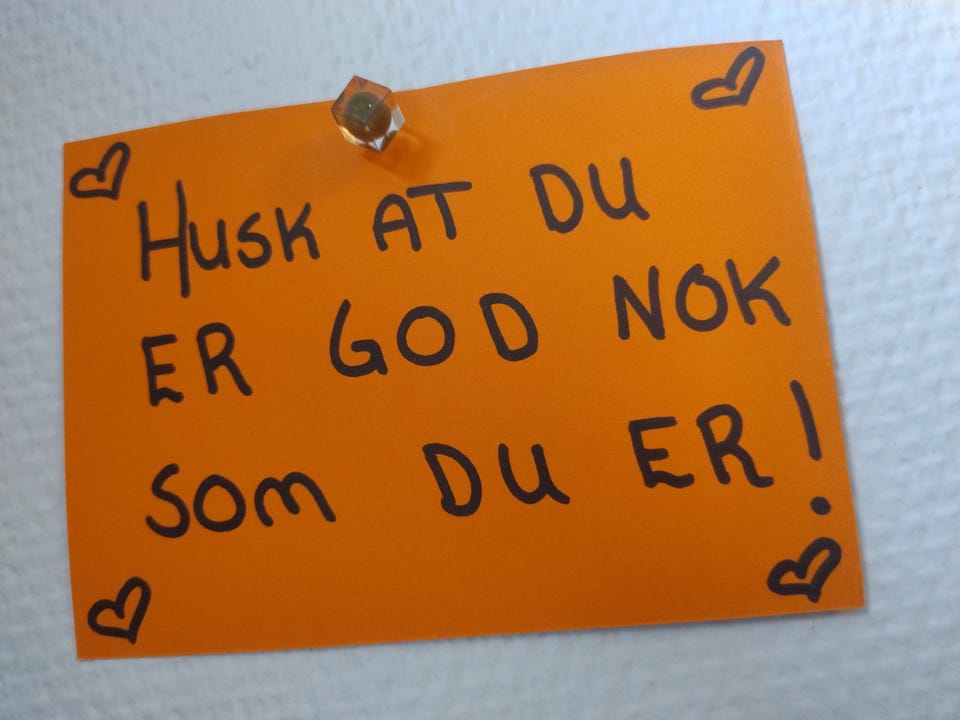 HUSK AT DU
ER GOD NOK
SOM DU ER!